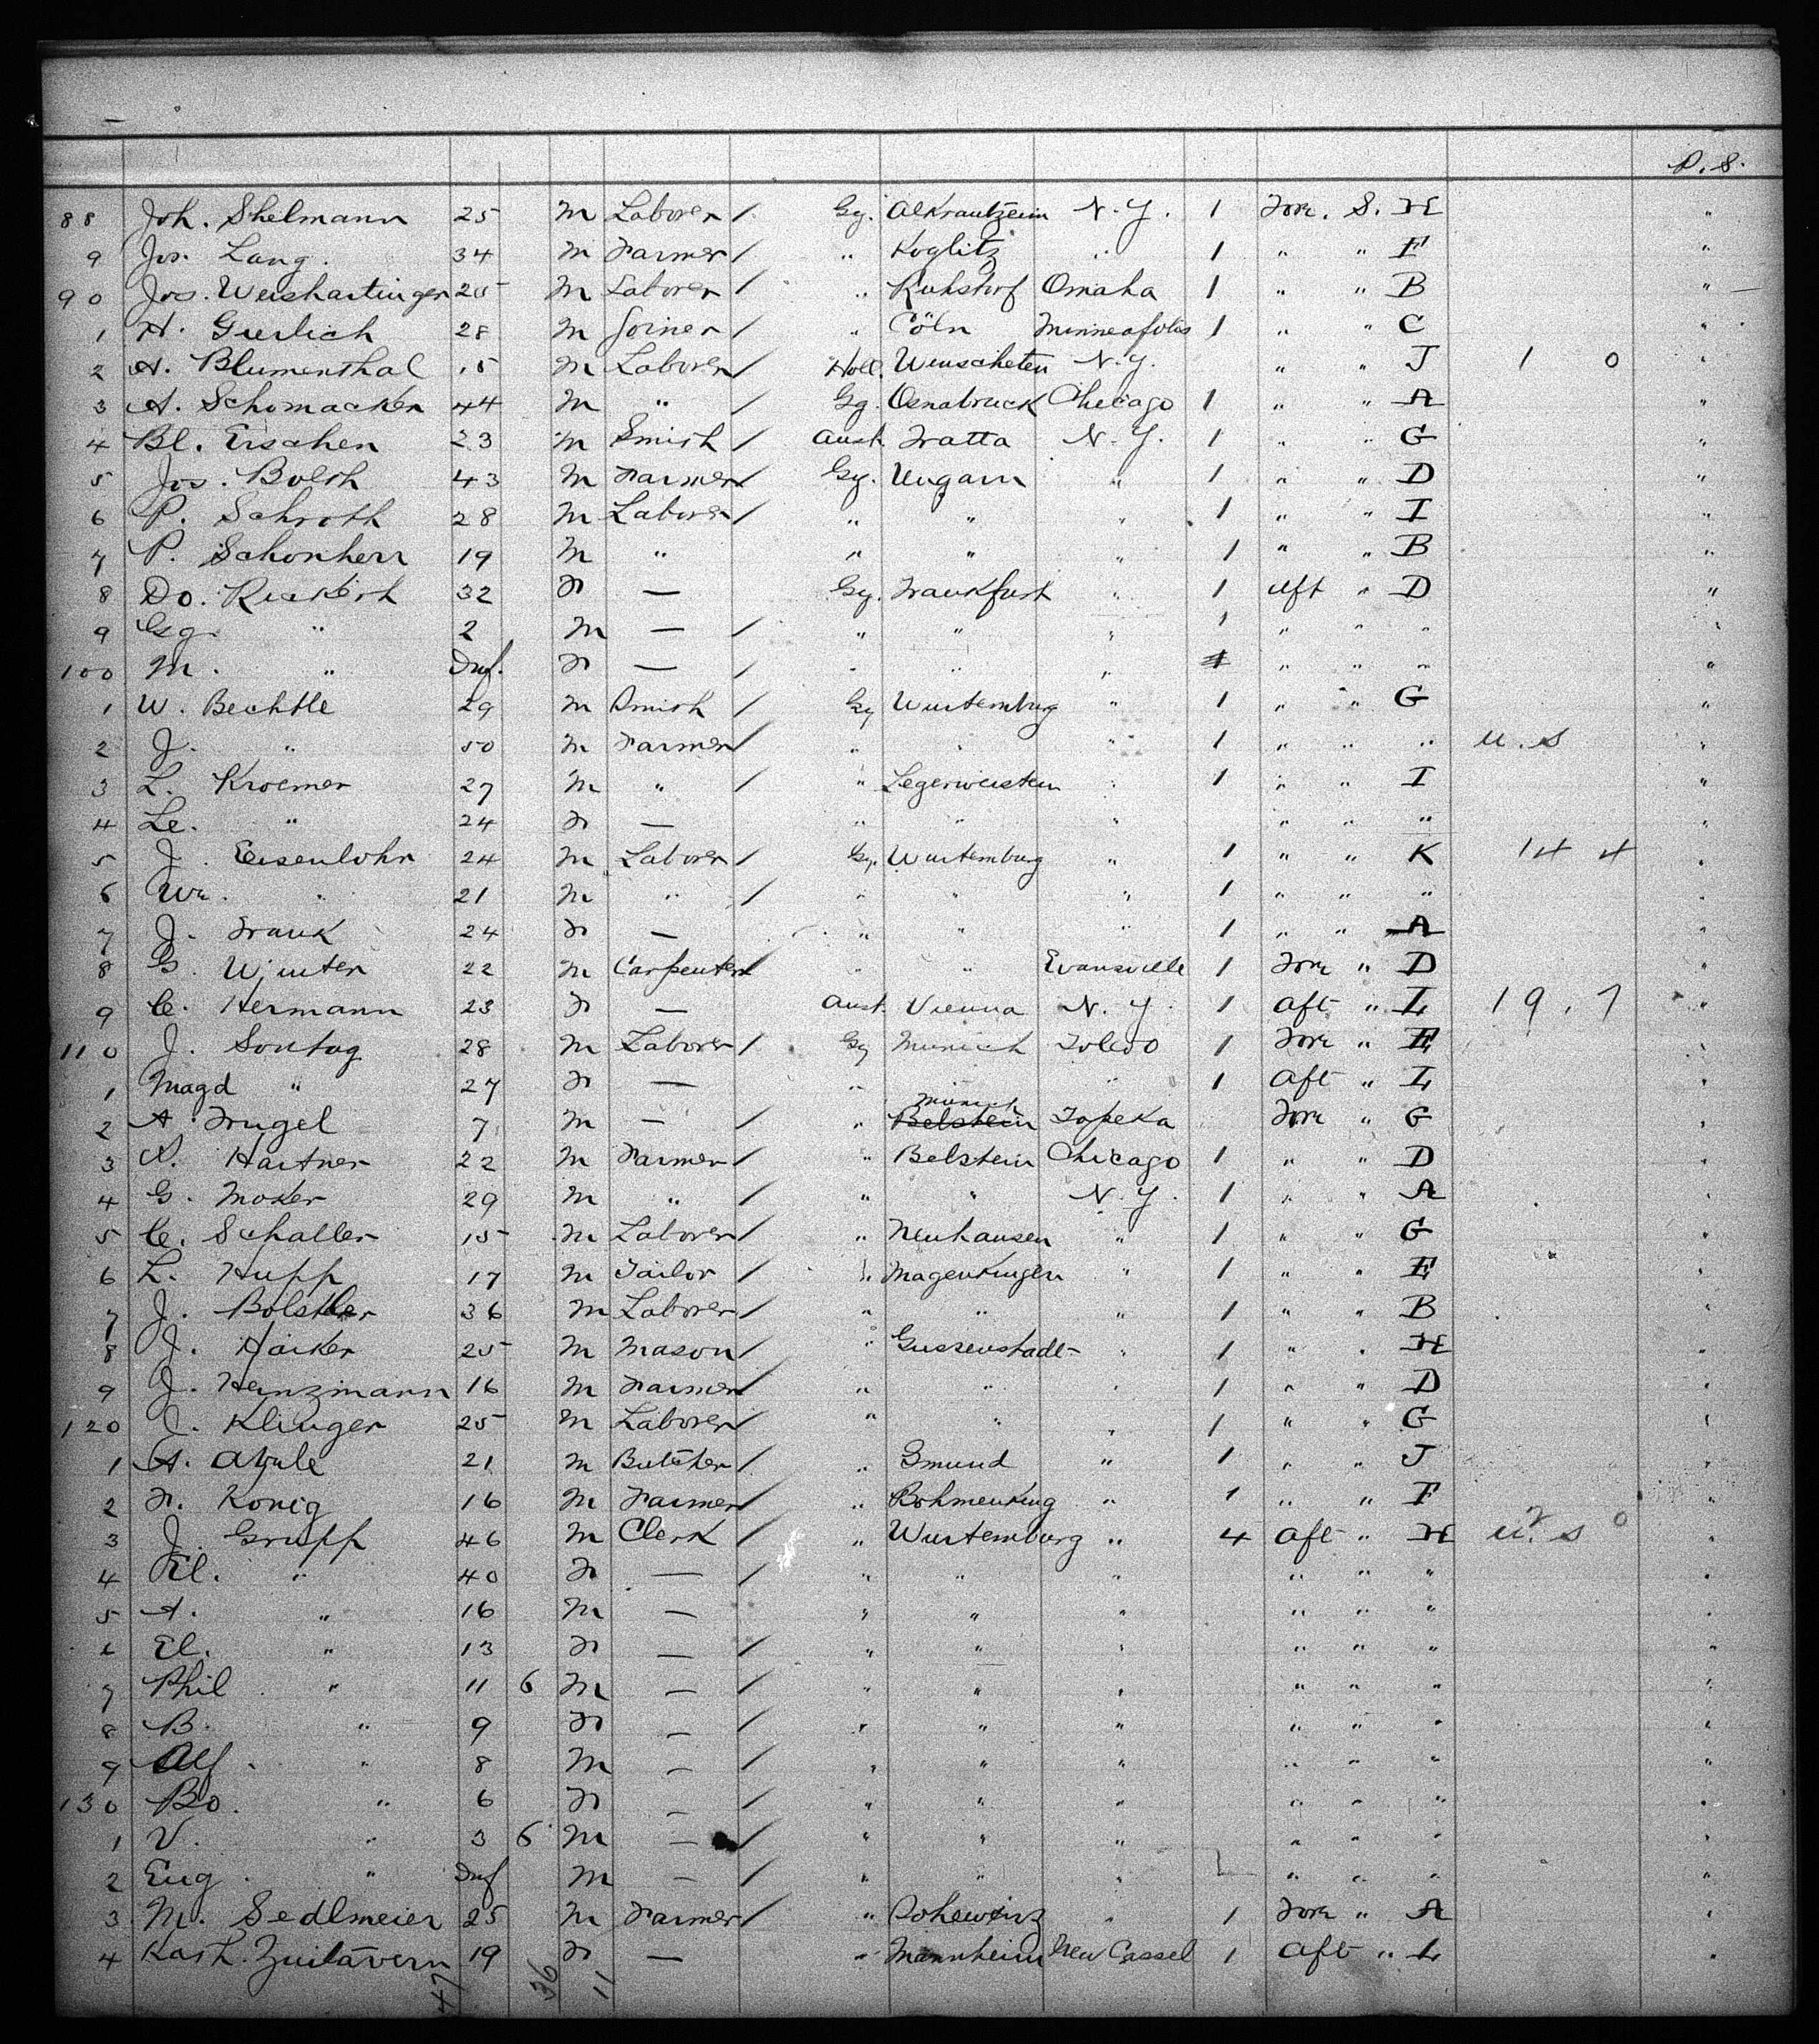 P. S.
88 Joh. Shelmann 25 M Laborer / Gy. N. Y. 1 For. S. H "
9 Jos. Lang. 34 M Farmer / " Koglitz " 1 " " F "
90 Jos. Weishartinger 25 M Laborer / " Ruhstorf Omaha 1 " " B "
1 H. Guerlich 28 M Joiner / " Cöln Minneapolis 1 " " C "
2 A. Blumenthal 15 M Laborer / Holl. N. Y. " " J 1 0 "
3 A. Schomacker 44 M " / Gg. Osnabruck Chicago 1 " " A "
4 Bl. Erschen 23 M Smith / Aust. Tratta N. Y. 1 " " G "
5 Jos. Bolth 43 M Farmer / Gy. Ungarn " 1 " " D "
6 P. Schroth 28 M Laborer / " " " 1 " " I "
7 P. Schonherr 19 M " " " " 1 " " B "
8 Do. 32 F — Gy. Frankfurt " 1 Aft " D "
9 Gg. " 2 M — / " " " 1 " " " "
100 M. " Inf. F — / " " " 1 " " " "
1 W. Bechtle 29 M Smith / Gy Wurtemburg " 1 " " G "
2 J. " 50 M Farmer / " " " 1 " " " U. S "
3 L. Kroemer 27 M " / " Legerweisten " 1 " " I "
4 Le. " 24 F — " " " " " "
5 J. Eisenlohr 24 M Laborer / Gy. Wurtemburg " 1 " " K 14 4 "
6 Wr. " 21 M " / " " " 1 " " "
7 J. Frank 24 F — " " " 1 " " A "
8 G. Winter 22 M Carpenter / " " Evansville 1 For " D "
9 C. Hermann 23 F — Aust. Vienna N. Y. 1 Aft " L 19 . 7 "
110 J. Sontag 28 M Laborer / Gy Munich Toledo 1 For " E "
1 Magd " 27 F — " " 1 Aft " L "
Munich
2 A. Frugel 7 M — / " Belstein Topeka For " G "
3 N. Hartner 22 M Farmer / " Belstein Chicago 1 " " D "
4 G. Moker 29 M " / " " N. Y. 1 " " A "
5 C. Schaller 15 M Laborer / " Neuhausen " 1 " " G "
6 L. Hupp 17 M Tailor / " Magenkingen " 1 " " E "
7 J. Bolstler 36 M Laborer / " " " 1 " " B "
8 J. Haiker 25 M Mason / " Gussenstadt " 1 " " H "
9 J. Henzmann 16 M Farmer / " " " 1 " " D "
120 J. Klinger 25 M Laborer / " " " 1 " " G "
1 A. 21 M Butcher / " Gmund " 1 " " J
2 F. Konig 16 M Farmer / " Bohmenking " 1 " " F "
3 J. Grupp 46 M Clerk / " Wurtemburg " 4 Aft " H U. S "
4 " 40 F — / " " " " " " "
5 A. " 16 M — " " " " " " "
6 El. " 13 F — / " " " " " " "
7 Phil " 11 6 M — / " " " " " " "
8 B. " 9 F — / " " " " " " "
9 Alf. " 8 M — / " " " " " " "
130 Bo. " 6 F — / " " " " " " "
1 V. " 3 6 M — / " " " " " " "
2 Eug. " Inf M — / " " " " " " "
3 M. Sedlmeier 25 M Farmer / " " 1 For " A "
4 Kath. 19 F — " Mannheim New Cassel 1 Aft " L "
47 36 11